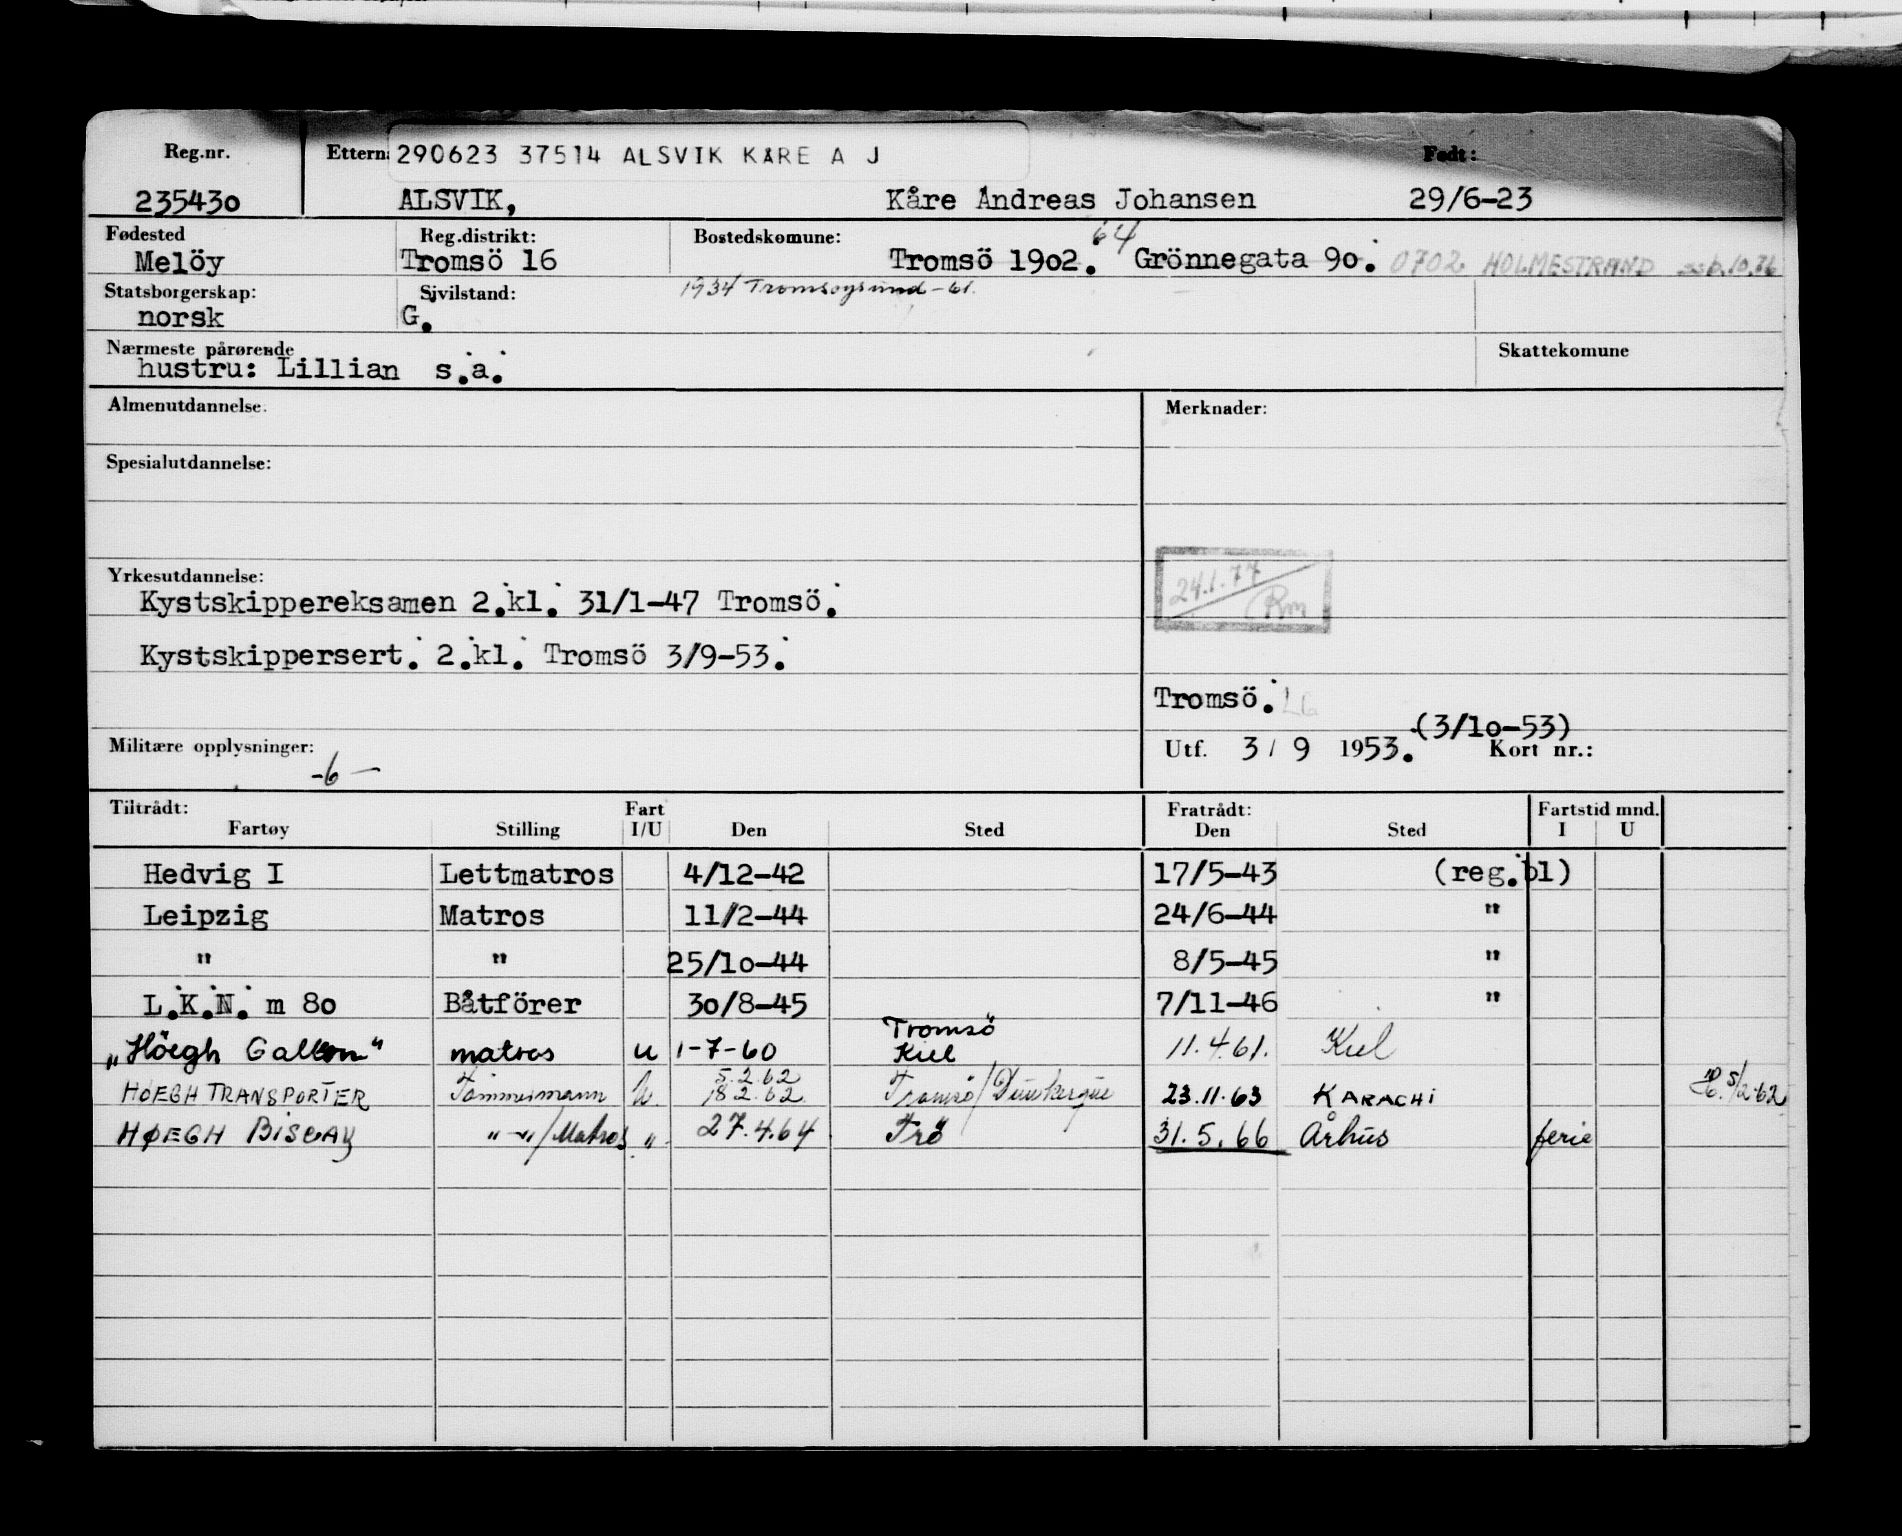 Reg.nr. Ettern: 290623 37514 ALSVIK KÅRE A J Født:
235430 ALSVIK, Kåre Andreas Johansen 29/6-23
Fødested Reg.distrikt: Bostedskomune: 64
Melöy Tromsö 16 Tromsö 1902. Grönnegata 90. 0702 HOLMESTRAND ssb.10.76
Statsborgerskap: Sivilstand: 1934 Tromsøysund -61.
norsk G.
Nærmeste pårørende Skattekomune
hustru: Lillian s.a.
Almenutdannelse. Merknader:
Spesialutdannelse:
Yrkesutdannelse:
24.1.77
Rm
Kystskippereksamen 2.kl. 31/1-47 Tromsö.
Kystskippersert. 2.kl. Tromsö 3/9-53.
Tromsö.
(3/10-53)
Militære opplysninger: Utf. 3 / 9 1953. Kort nr.:
-6-
Tiltrådt: Fart Fratrådt: Fartstid mnd.
Fartøy Stilling I/U Den Sted Den Sted I U
Hedvig I Lettmatros 4/12-42 17/5-43 (reg.bl)
Leipzig Matros 11/2-44 24/6-44 "
" " 25/10-44 8/5-45 "
L.K.N. m 80 Båtförer 30/8-45 7/11-46 "
Tromsö
„Höegh Galleon" matros u 1-7-60 Kiel 11.4.61. Kiel
5.2.62
HÖEGH TRANSPORTER Tömmermann U. 18.2.62 Tromsö/Dunkerque 23.11.63 KARACHI 5/2-62
HØEGH BISCAY "-"/Matros " 27.4.64 Trö 31.5.66 Århus ferie